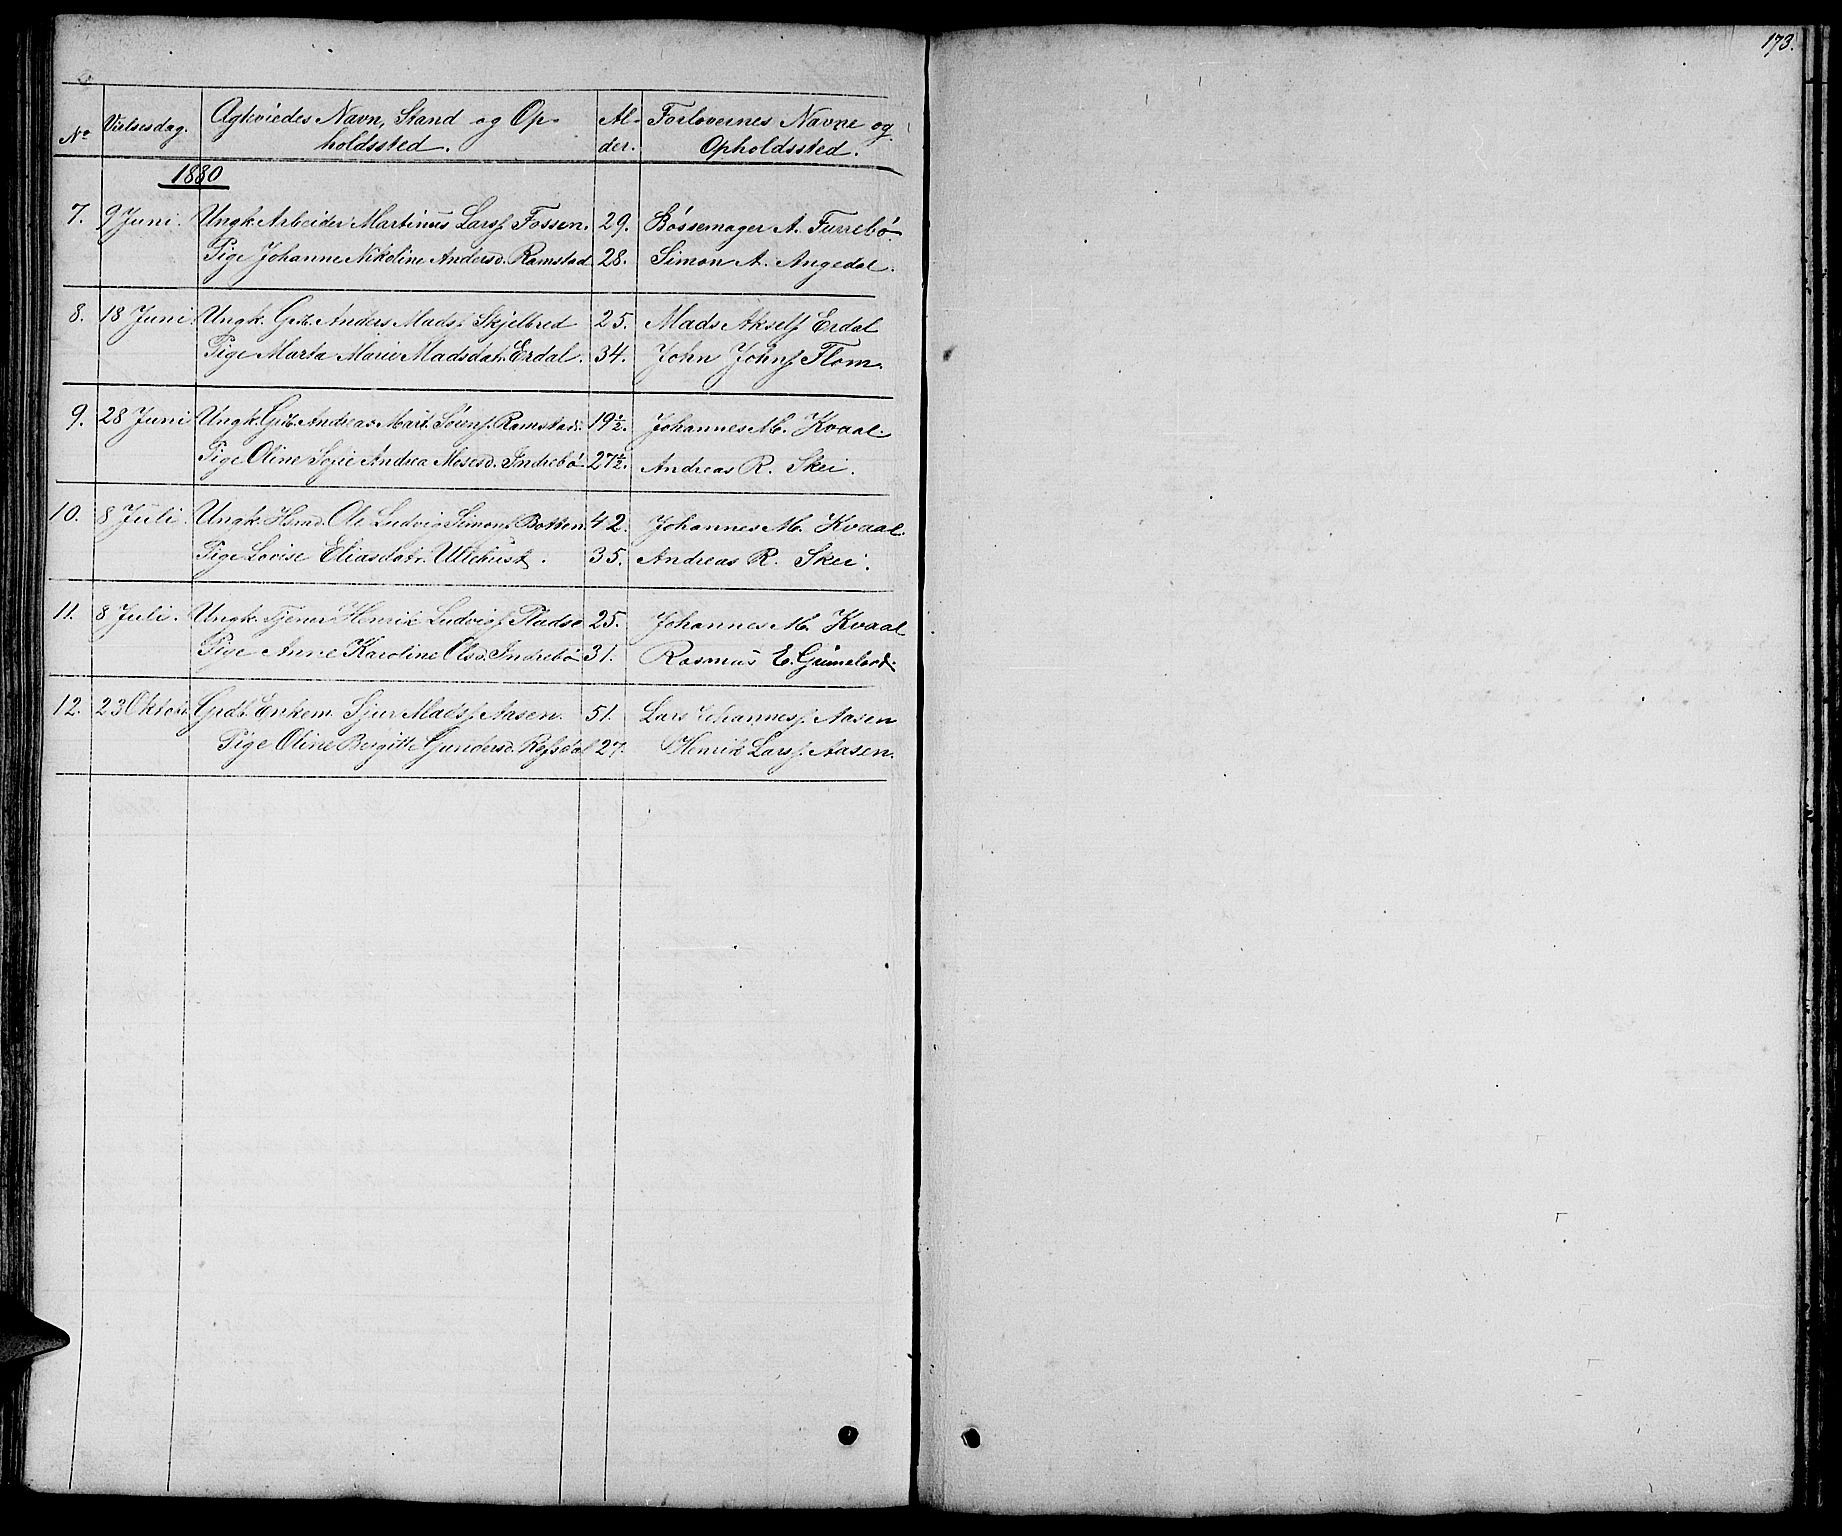 173.
No Vielsesdag. Ægteviedes Navn, Stand og Op- Al- Forlovernes Navne og
holdssted. der. Opholdssted.
1880
7. 9 Juni. Ungk. Arbeider Martinus Larss. Fossen. 29. Bössemager A. Furrebö.
Pige Johanne Nikoline Andersd. Ramstad 28. Simon A. Angedal.
8. 18 Juni. Ungk. Grb. Anders Mads. Skjelbred 25. Mads Aksels. Erdal
Pige Marta Marie Madsdat. Erdal. 34. John Johns. Flom.
9. 28 Juni Ungk. Grb. Andreas Mart. Sörens. Ramstad. 19½. Johannes M. Kvaal.
Pige Oline Sofie Andrea Mosesd. Indrebö 27½. Andreas R. Skei.
10. 8 Juli. Ungk. Hmd. Ole Ludvig Simons. Botten. 42. Johannes M. Kvaal.
Pige Lovise Eliasdatr. Ullebust. 35. Andreas R. Skei.
11. 8 Juli. Ungk. Tjener Henrik Ludvigs. Pladsø 25. Johannes M. Kvaal
Pige Anne Karoline Olsd. Indrebö 31. Rasmus E. Grimeland.
12. 23 Oktob. Grdb. Enkem. Sjur Madss. Aasen. 51. Lars Johanness. Aasen
Pige Oline Bergitte Gundersd. Refsdal 27. Henrik Larss. Aasen.